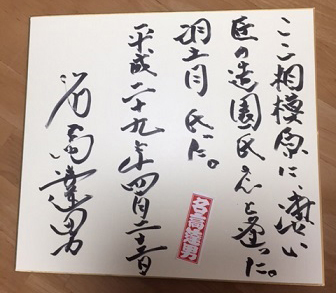 ここ相模原に凄い
匠の造園氏さんと逢った。
氏だ。
平成二十九年四月二十二日
名高達男
名高達男